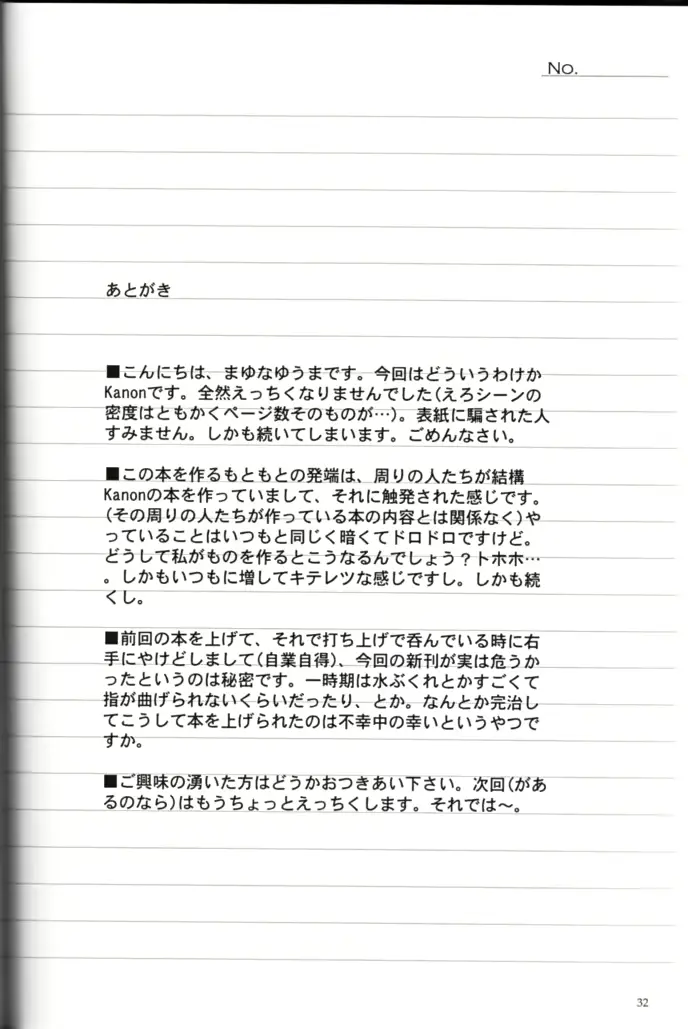 No.
あとがき
■こんにちは、まゆなゆうまです。今回はどういうわけか
Kanonです。全然えっちくなりませんでした(えろシーンの
密度はともかくページ数そのものが…)。表紙に騙された人
すみません。しかも続いてしまいます。ごめんなさい。
■この本を作るもともとの発端は、周りの人たちが結構
Kanonの本を作っていまして、それに触発された感じです。
(その周りの人たちが作っている本の内容とは関係なく)や
っていることはいつもと同じく暗くてドロドロですけど。
どうして私がものを作るとこうなるんでしょう？トホホ…
。しかもいつもに増してキテレツな感じですし。しかも続
くし。
■前回の本を上げて、それで打ち上げで呑んでいる時に右
手にやけどしまして(自業自得)、今回の新刊が実は危うか
ったというのは秘密です。一時期は水ぶくれとかすごくて
指が曲げられないくらいだったり、とか。なんとか完治し
てこうして本を上げられたのは不幸中の幸いというやつで
すか。
■ご興味の湧いた方はどうかおつきあい下さい。次回(があ
るのなら)はもうちょっとえっちくします。それでは〜。
32